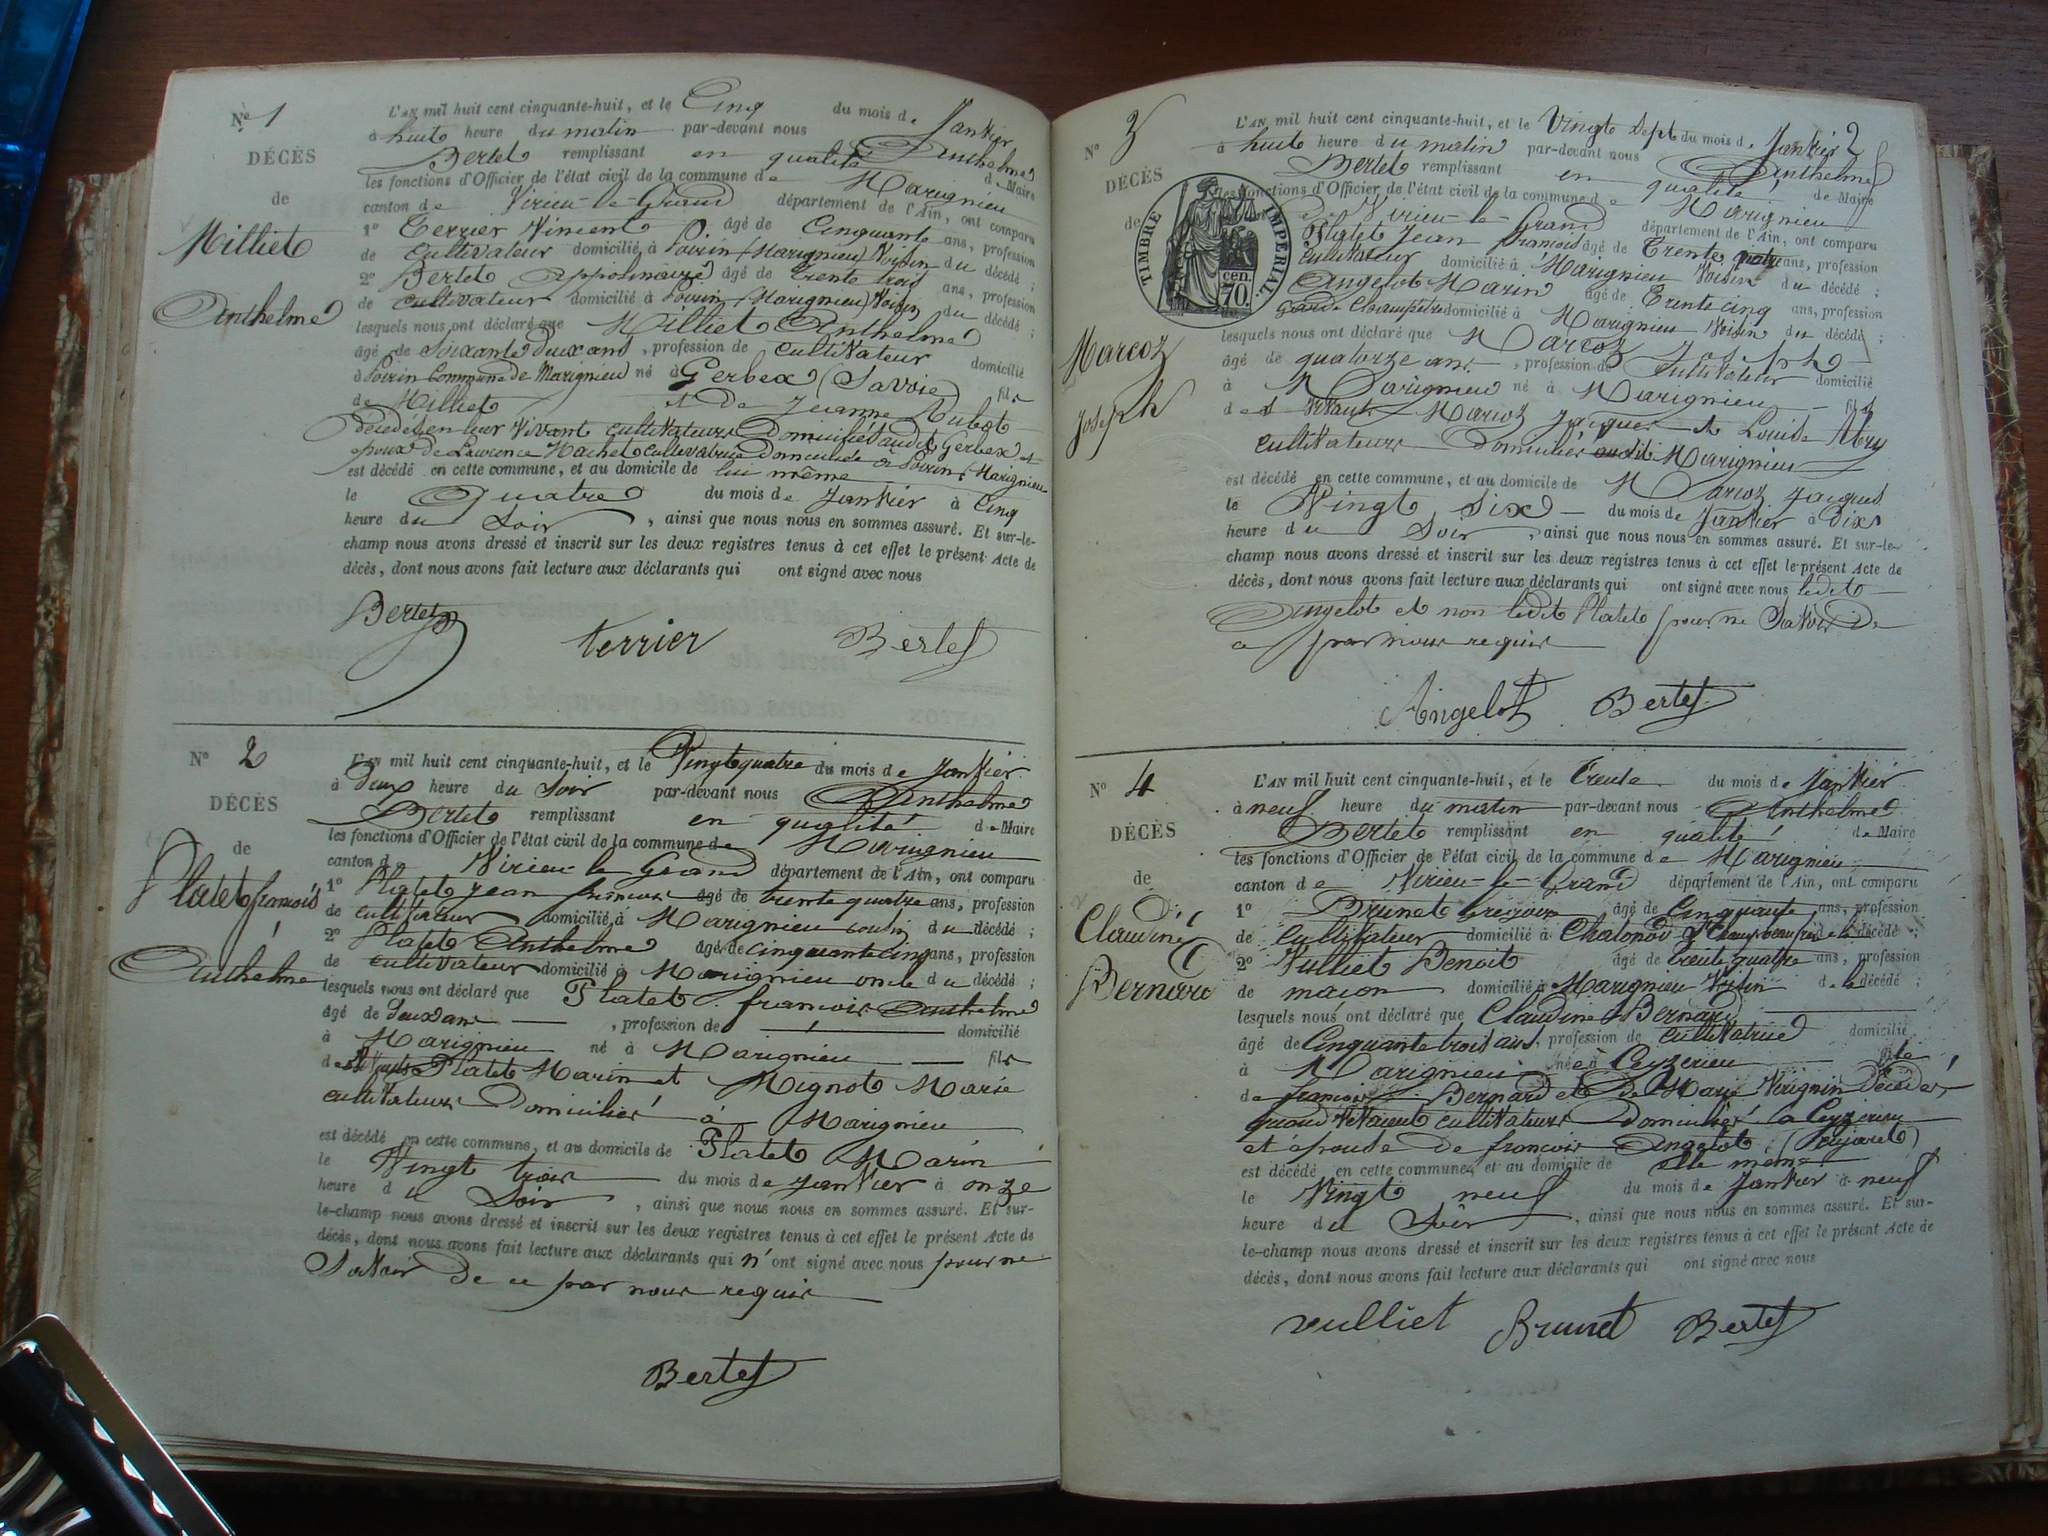 N° 1
DÉCÈS
de
Milliet
Anthelme
L'AN mil huit cent cinquante-huit, et le Cinq du mois de Janvier
à huit heure du matin par-devant nous Anthelme
Bertet remplissant en qualité de Maire
les fonctions d'Officier de l'état civil de la commune de Marignieu
canton de Virieu-le-Grand département de l'Ain, ont comparu
1° Terrier Vincent âgé de Cinquante ans, profession
de cultivateur domicilié à Poirin (Marignieu) Voisin du décédé ;
2° Bertet Appolinaire âgé de trente trois ans, profession
de cultivateur domicilié à Poirin (Marignieu) Voisin du décédé ;
lesquels nous ont déclaré que Milliet Anthelme
âgé de Soixante deux ans, profession de cultivateur domicilié
à Poirin Commune de Marignieu né à Gerbex (Savoie) fils
de Milliet et de Jeanne
décédés en leur vivant cultivateurs domiciliés audit Gerbex et
époux de Laurence Machet cultivatrice domiciliée à Poirin (Marignieu
est décédé en cette commune, et au domicile de lui même
le Quatre du mois de Janvier à Cinq
heure du Soir, ainsi que nous nous en sommes assuré. Et sur-le-
champ nous avons dressé et inscrit sur les deux registres tenus à cet effet le présent Acte de
décès, dont nous avons fait lecture aux déclarants qui ont signé avec nous
Bertet terrier Bertet
N° 2
DÉCÈS
de
Platet françois
Anthelme
L'AN mil huit cent cinquante-huit, et le Vingt quatre du mois de Janvier
à Deux heure du Soir par-devant nous Anthelme
Bertet remplissant en qualité de Maire
les fonctions d'Officier de l'état civil de la commune de Marignieu
canton de Virieu-le-Grand département de l'Ain, ont comparu
1° Platet Jean françois âgé de trente quatre ans, profession
de cultivateur domicilié à Marignieu cousin du décédé ;
2° Platet Anthelme âgé de cinquante cinq ans, profession
de cultivateur domicilié à Marignieu oncle du décédé ;
lesquels nous ont déclaré que Platet françois Anthelme
âgé de Deux ans, profession de domicilié
à Marignieu né à Marignieu fils
de Platet Marin et Mignot Marie
cultivateurs Domiciliés à Marignieu
est décédé en cette commune, et au domicile de Platet Marin
le Vingt trois du mois de Janvier à onze
heure du Soir, ainsi que nous nous en sommes assuré. Et sur-
le-champ nous avons dressé et inscrit sur les deux registres tenus à cet effet le présent Acte de
décès, dont nous avons fait lecture aux déclarants qui n'ont signé avec nous pour ne
Savoir de ce par nous requis
Bertet
2
N° 3
DÉCÈS
de
Marcoz
Joseph
TIMBRE IMPERIAL
70 cen.
L'AN mil huit cent cinquante-huit, et le Vingt Sept du mois de Janvier
à huit heure du matin par-devant nous Anthelme
Bertet remplissant en qualité de Maire
les fonctions d'Officier de l'état civil de la commune de Marignieu
Virieu-le-Grand département de l'Ain, ont comparu
Platet Jean françois âgé de Trente quatre ans, profession
cultivateur domicilié à Marignieu Voisin du décédé ;
Angelot Marin âgé de Trente cinq ans, profession
Garde Champêtre domicilié à Marignieu Voisin du décédé ;
lesquels nous ont déclaré que Marcoz Joseph
âgé de quatorze ans, profession de Cultivateur domicilié
à Marignieu né à Marignieu fils
de Marcoz Jacques et Louise Abry
cultivateurs Domiciliés audit Marignieu
est décédé en cette commune, et au domicile de Marcoz Jacques
le Vingt Six du mois de Janvier à Dix
heure du Soir, ainsi que nous nous en sommes assuré. Et sur-le-
champ nous avons dressé et inscrit sur les deux registres tenus à cet effet le présent Acte de
décès, dont nous avons fait lecture aux déclarants qui ont signé avec nous ledit
Angelot et non ledit Platet pour ne Savoir De
ce par nous requis
Angelot Bertet
N° 4
DÉCÈS
de
Claudine
Bernard
L'AN mil huit cent cinquante-huit, et le Trente du mois de Janvier
à neuf heure du matin par-devant nous Anthelme
Bertet remplissant en qualité de Maire
les fonctions d'Officier de l'état civil de la commune de Marignieu
canton de Virieu-le-Grand département de l'Ain, ont comparu
1° Brunet Grégoire âgé de Cinquante ans, profession
de Cultivateur domicilié à beaufrère de la décédé ;
2° Vulliet Benoit âgé de trente quatre ans, profession
de maçon domicilié à Marignieu Voisin de la décédé ;
lesquels nous ont déclaré que Claudine Bernard
âgé de Cinquante trois ans, profession de cultivatrice domicilié
à Marignieu née à Ceyzerieu fille
de françois Bernard et De Marie Virignin Décédés,
quand vivaient cultivateurs Domiciliés à Ceyzerieu
et épouse de françois Angelot
est décédé en cette commune, et au domicile de elle même
le Vingt neuf du mois de Janvier à neuf
heure du Soir, ainsi que nous nous en sommes assuré. Et sur-
le-champ nous avons dressé et inscrit sur les deux registres tenus à cet effet le présent Acte de
décès, dont nous avons fait lecture aux déclarants qui ont signé avec nous
vulliet Brunet Bertet